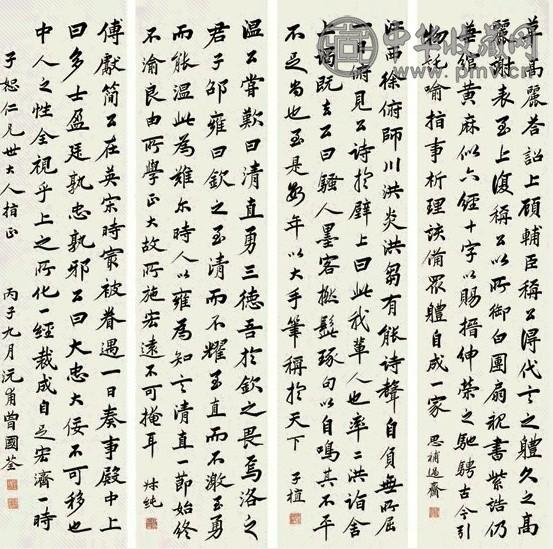 草高麗答詔上顧輔臣稱公得代言之體久之高
麗謝表至上復稱公以所御白團扇親書紫誥仍
兼綰黃麻似六經十字以賜搢紳榮之馳騁古今引
物託喻指事析理該備眾體自成一家 思補過齋
江西徐俯師川洪炎洪芻有能詩聲自負無所屈
一日府見公詩於壁上曰此我輩人也率二洪詣舍
上謁既去公曰騷人墨客撚髭琢句以自鳴其不平
不足尚也至是數年以大手筆稱於天下 子植
溫公嘗歎曰清直勇三德吾於欽之畏焉洛之
君子邵雍曰欽之至清而不耀至直而不激至勇
而能溫此為難尔時人以雍為知言清直一節始終
不渝良由所學正大故所施宏遠不可掩耳 純
傅獻簡公在英宗時最被眷遇一日奏事殿中上
曰多士盈廷孰忠孰邪公曰大忠大佞不可移也
中人之性全視乎上之所化一經裁成自足宏濟一時
子恕仁兄世大人指正 丙子九月沅甫曾國荃
中华收藏网